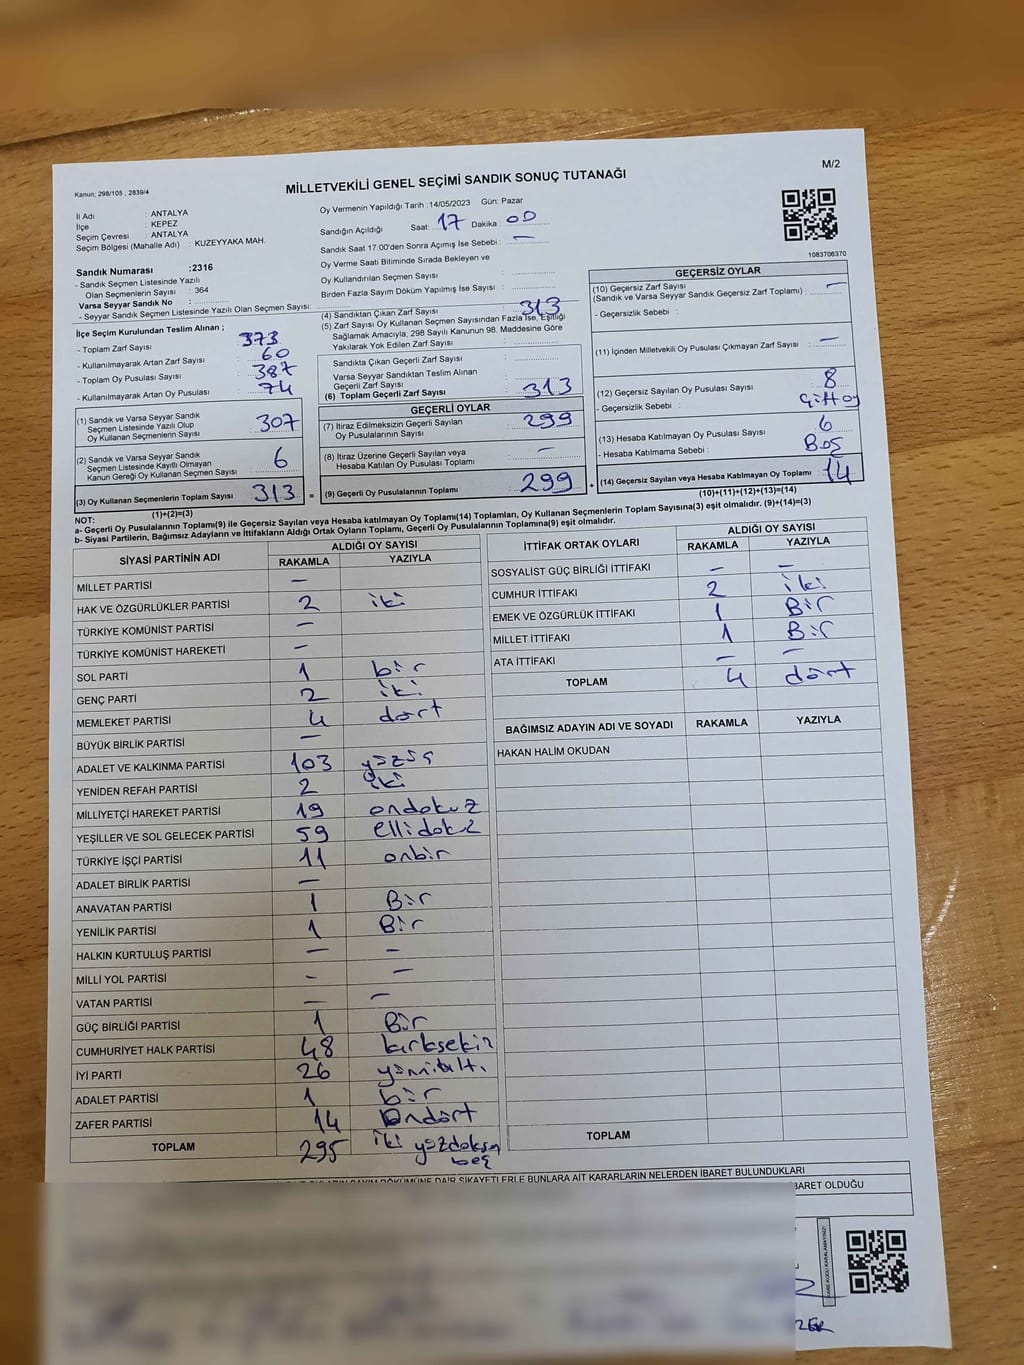 Kanun: 298/105 , 2839/4
M/2
MİLLETVEKİLİ GENEL SEÇİMİ SANDIK SONUÇ TUTANAĞI
İl Adı : ANTALYA
İlçe : KEPEZ
Seçim Çevresi : ANTALYA
Seçim Bölgesi (Mahalle Adı) : KUZEYYAKA MAH.
Sandık Numarası :2316
- Sandık Seçmen Listesinde Yazılı
Olan Seçmenlerin Sayısı : 364
Varsa Seyyar Sandık No :
- Seyyar Sandık Seçmen Listesinde Yazılı Olan Seçmen Sayısı:
İlçe Seçim Kurulundan Teslim Alınan ;
- Toplam Zarf Sayısı 373
- Kullanılmayarak Artan Zarf Sayısı 60
- Toplam Oy Pusulası Sayısı 387
- Kullanılmayarak Artan Oy Pusulası 74
(1) Sandık ve Varsa Seyyar Sandık
Seçmen Listesinde Yazılı Olup
Oy Kullanan Seçmenlerin Sayısı 307
(2) Sandık ve Varsa Seyyar Sandık
Seçmen Listesinde Kayıtlı Olmayan
Kanun Gereği Oy Kullanan Seçmen Sayısı 6
(3) Oy Kullanan Seçmenlerin Toplam Sayısı 313
(1)+(2)=(3)
Oy Vermenin Yapıldığı Tarih :14/05/2023 Gün: Pazar
Sandığın Açıldığı Saat: 17 Dakika : 00
Sandık Saat 17:00'den Sonra Açımış İse Sebebi : —
Oy Verme Saati Bitiminde Sırada Bekleyen ve
Oy Kullandırılan Seçmen Sayısı :
Birden Fazla Sayım Döküm Yapılmış İse Sayısı :
(4) Sandıktan Çıkan Zarf Sayısı 313
(5) Zarf Sayısı Oy Kullanan Seçmen Sayısından Fazla İse, Eşitliği
Sağlamak Amacıyla, 298 Sayılı Kanunun 98. Maddesine Göre
Yakılarak Yok Edilen Zarf Sayısı :
Sandıkta Çıkan Geçerli Zarf Sayısı :
Varsa Seyyar Sandıktan Teslim Alınan
Geçerli Zarf Sayısı :
(6) Toplam Geçerli Zarf Sayısı : 313
GEÇERLİ OYLAR
(7) İtiraz Edilmeksizin Geçerli Sayılan
Oy Pusulalarının Sayısı : 299
(8) İtiraz Üzerine Geçerli Sayılan veya
Hesaba Katılan Oy Pusulası Toplamı : —
= (9) Geçerli Oy Pusulalarının Toplamı 299 +
1083706370
GEÇERSİZ OYLAR
(10) Geçersiz Zarf Sayısı —
(Sandık ve Varsa Seyyar Sandık Geçersiz Zarf Toplamı) :
- Geçersizlik Sebebi :
(11) İçinden Milletvekili Oy Pusulası Çıkmayan Zarf Sayısı : —
(12) Geçersiz Sayılan Oy Pusulası Sayısı : 8
- Geçersizlik Sebebi : Çift oy
(13) Hesaba Katılmayan Oy Pusulası Sayısı : 6
- Hesaba Katılmama Sebebi : Boş
(14) Geçersiz Sayılan veya Hesaba Katılmayan Oy Toplamı : 14
(10)+(11)+(12)+(13)=(14)
NOT:
a- Geçerli Oy Pusulalarının Toplamı(9) ile Geçersiz Sayılan veya Hesaba katılmayan Oy Toplamı(14) Toplamları, Oy Kullanan Seçmenlerin Toplam Sayısına(3) eşit olmalıdır. (9)+(14)=(3)
b- Siyasi Partilerin, Bağımsız Adayların ve İttifakların Aldığı Ortak Oyların Toplamı, Geçerli Oy Pusulalarının Toplamına(9) eşit olmalıdır.
SİYASİ PARTİNİN ADI ALDIĞI OY SAYISI
RAKAMLA YAZIYLA
MİLLET PARTİSİ —
HAK VE ÖZGÜRLÜKLER PARTİSİ 2 iki
TÜRKİYE KOMÜNİST PARTİSİ —
TÜRKİYE KOMÜNİST HAREKETİ —
SOL PARTİ 1 bir
GENÇ PARTİ 2 iki
MEMLEKET PARTİSİ 4 dört
BÜYÜK BİRLİK PARTİSİ —
ADALET VE KALKINMA PARTİSİ 103 yüzüç
YENİDEN REFAH PARTİSİ 2 iki
MİLLİYETÇİ HAREKET PARTİSİ 19 ondokuz
YEŞİLLER VE SOL GELECEK PARTİSİ 59 ellidokuz
TÜRKİYE İŞÇİ PARTİSİ 11 onbir
ADALET BİRLİK PARTİSİ —
ANAVATAN PARTİSİ 1 Bir
YENİLİK PARTİSİ 1 Bir
HALKIN KURTULUŞ PARTİSİ — —
MİLLİ YOL PARTİSİ - —
VATAN PARTİSİ — —
GÜÇ BİRLİĞİ PARTİSİ 1 Bir
CUMHURİYET HALK PARTİSİ 48 kırksekiz
İYİ PARTİ 26 yirmialtı
ADALET PARTİSİ 1 bir
ZAFER PARTİSİ 14 Ondört
TOPLAM 295 iki yüzdoksan
beş
İTTİFAK ORTAK OYLARI ALDIĞI OY SAYISI
RAKAMLA YAZIYLA
SOSYALİST GÜÇ BİRLİĞİ İTTİFAKI — —
CUMHUR İTTİFAKI 2 iki
EMEK VE ÖZGÜRLÜK İTTİFAKI 1 Bir
MİLLET İTTİFAKI 1 Bir
ATA İTTİFAKI — —
TOPLAM 4 dört
BAĞIMSIZ ADAYIN ADI VE SOYADI RAKAMLA YAZIYLA
HAKAN HALİM OKUDAN
TOPLAM
ŞİKAYETLERLE BUNLARA AİT KARARLARIN NELERDEN İBARET BULUNDUKLARI
BARET OLDUĞU